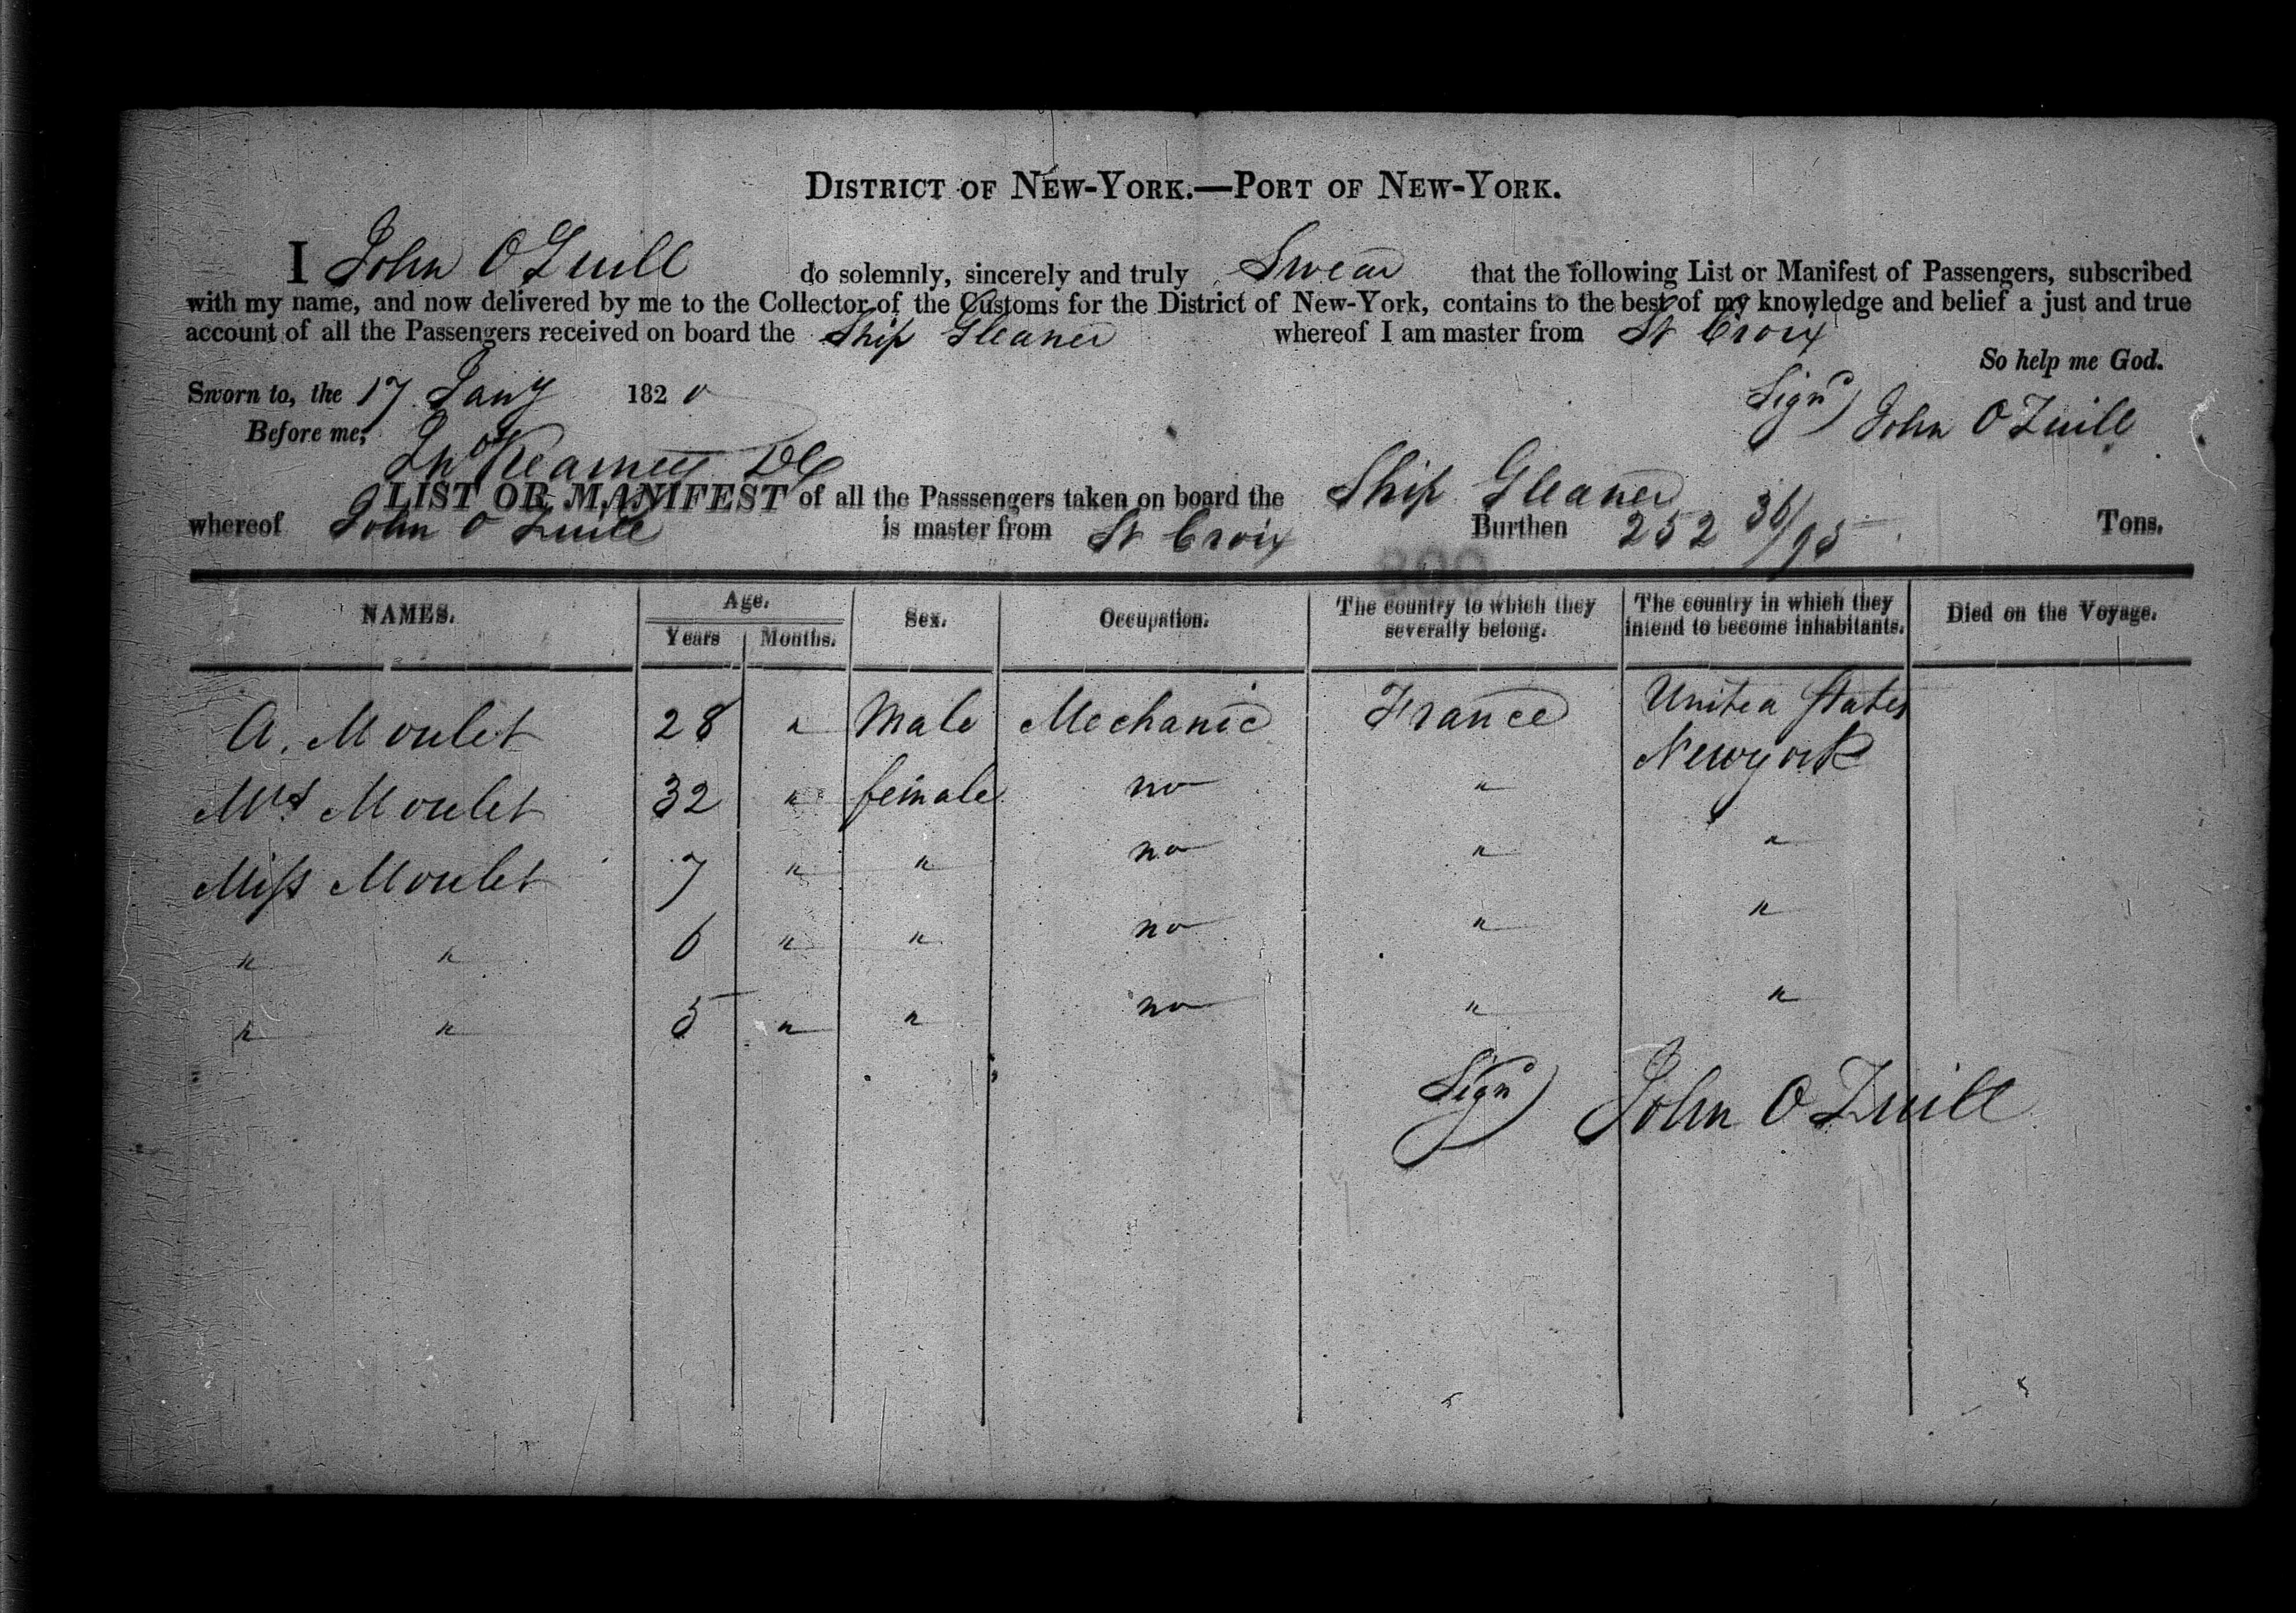 DISTRICT OF NEW-YORK.—PORT OF NEW-YORK.
I John O Zuill do solemnly, sincerely and truly Swear that the following List or Manifest of Passengers, subscribed
with my name, and now delivered by me to the Collector of the Customs for the District of New-York, contains to the best of my knowledge and belief a just and true
account of all the Passengers received on board the Ship Gleaner whereof I am master from St Croix
So help me God.
Sworn to, the 17 Jany 1820
Before me,
Sign) John O Zuill
LIST OR MANIFEST of all the Passsengers taken on board the Ship Gleaner
whereof John O Zuill is master from St Croix Burthen 252 36/95 Tons.
NAMES. Age. Years Months. Sex. Occupation. The country to which they severally belong. The country in which they intend to become inhabitants. Died on the Voyage.
A. Moulet 28 " Male Mechanic France United States
Newyork
Mrs Moulet 32 " female no "
Miss Moulet 7 " " no " "
" " 6 " " no " "
" " 5 " " no " "
Sign) John O Zuill